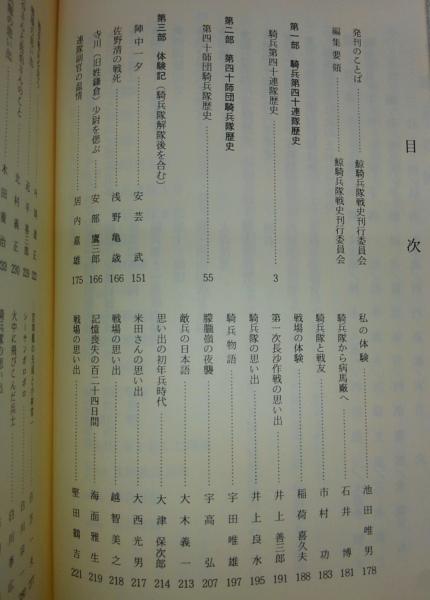 目次
発刊のことば……鯨騎兵隊戦史刊行委員会
編集要領……鯨騎兵隊戦史刊行委員会
第一部 騎兵第四十連隊歴史
騎兵第四十連隊歴史……3
第二部 第四十師団騎兵隊歴史
第四十師団騎兵隊歴史……55
第三部 体験記（騎兵隊解隊後を含む）
陣中一夕……安芸武 151
佐野清の戦死……浅野亀歳 166
寺川（旧姓鎌倉）少尉を偲ぶ……安部鷹三郎 166
連隊副官の温情……居内嘉雄 175
私の体験……池田唯男 178
騎兵隊から病馬廠へ……石井博 181
騎兵隊と戦友……市村功 183
戦場の体験……稲荷喜久夫 188
第一次長沙作戦の思い出……井上善三郎 191
騎兵隊の思い出……井上良水 195
騎兵物語……宇田唯雄 197
朦朧嶺の夜襲……宇高弘 207
敵兵の日本語……大木義一 213
思い出の初年兵時代……大津保次郎 214
米田さんの思い出……大西光男 217
戦場の思い出……越智美之 218
記憶喪失の百二十四日間……海面雅生 219
戦場の思い出……堅田鶴吉 221